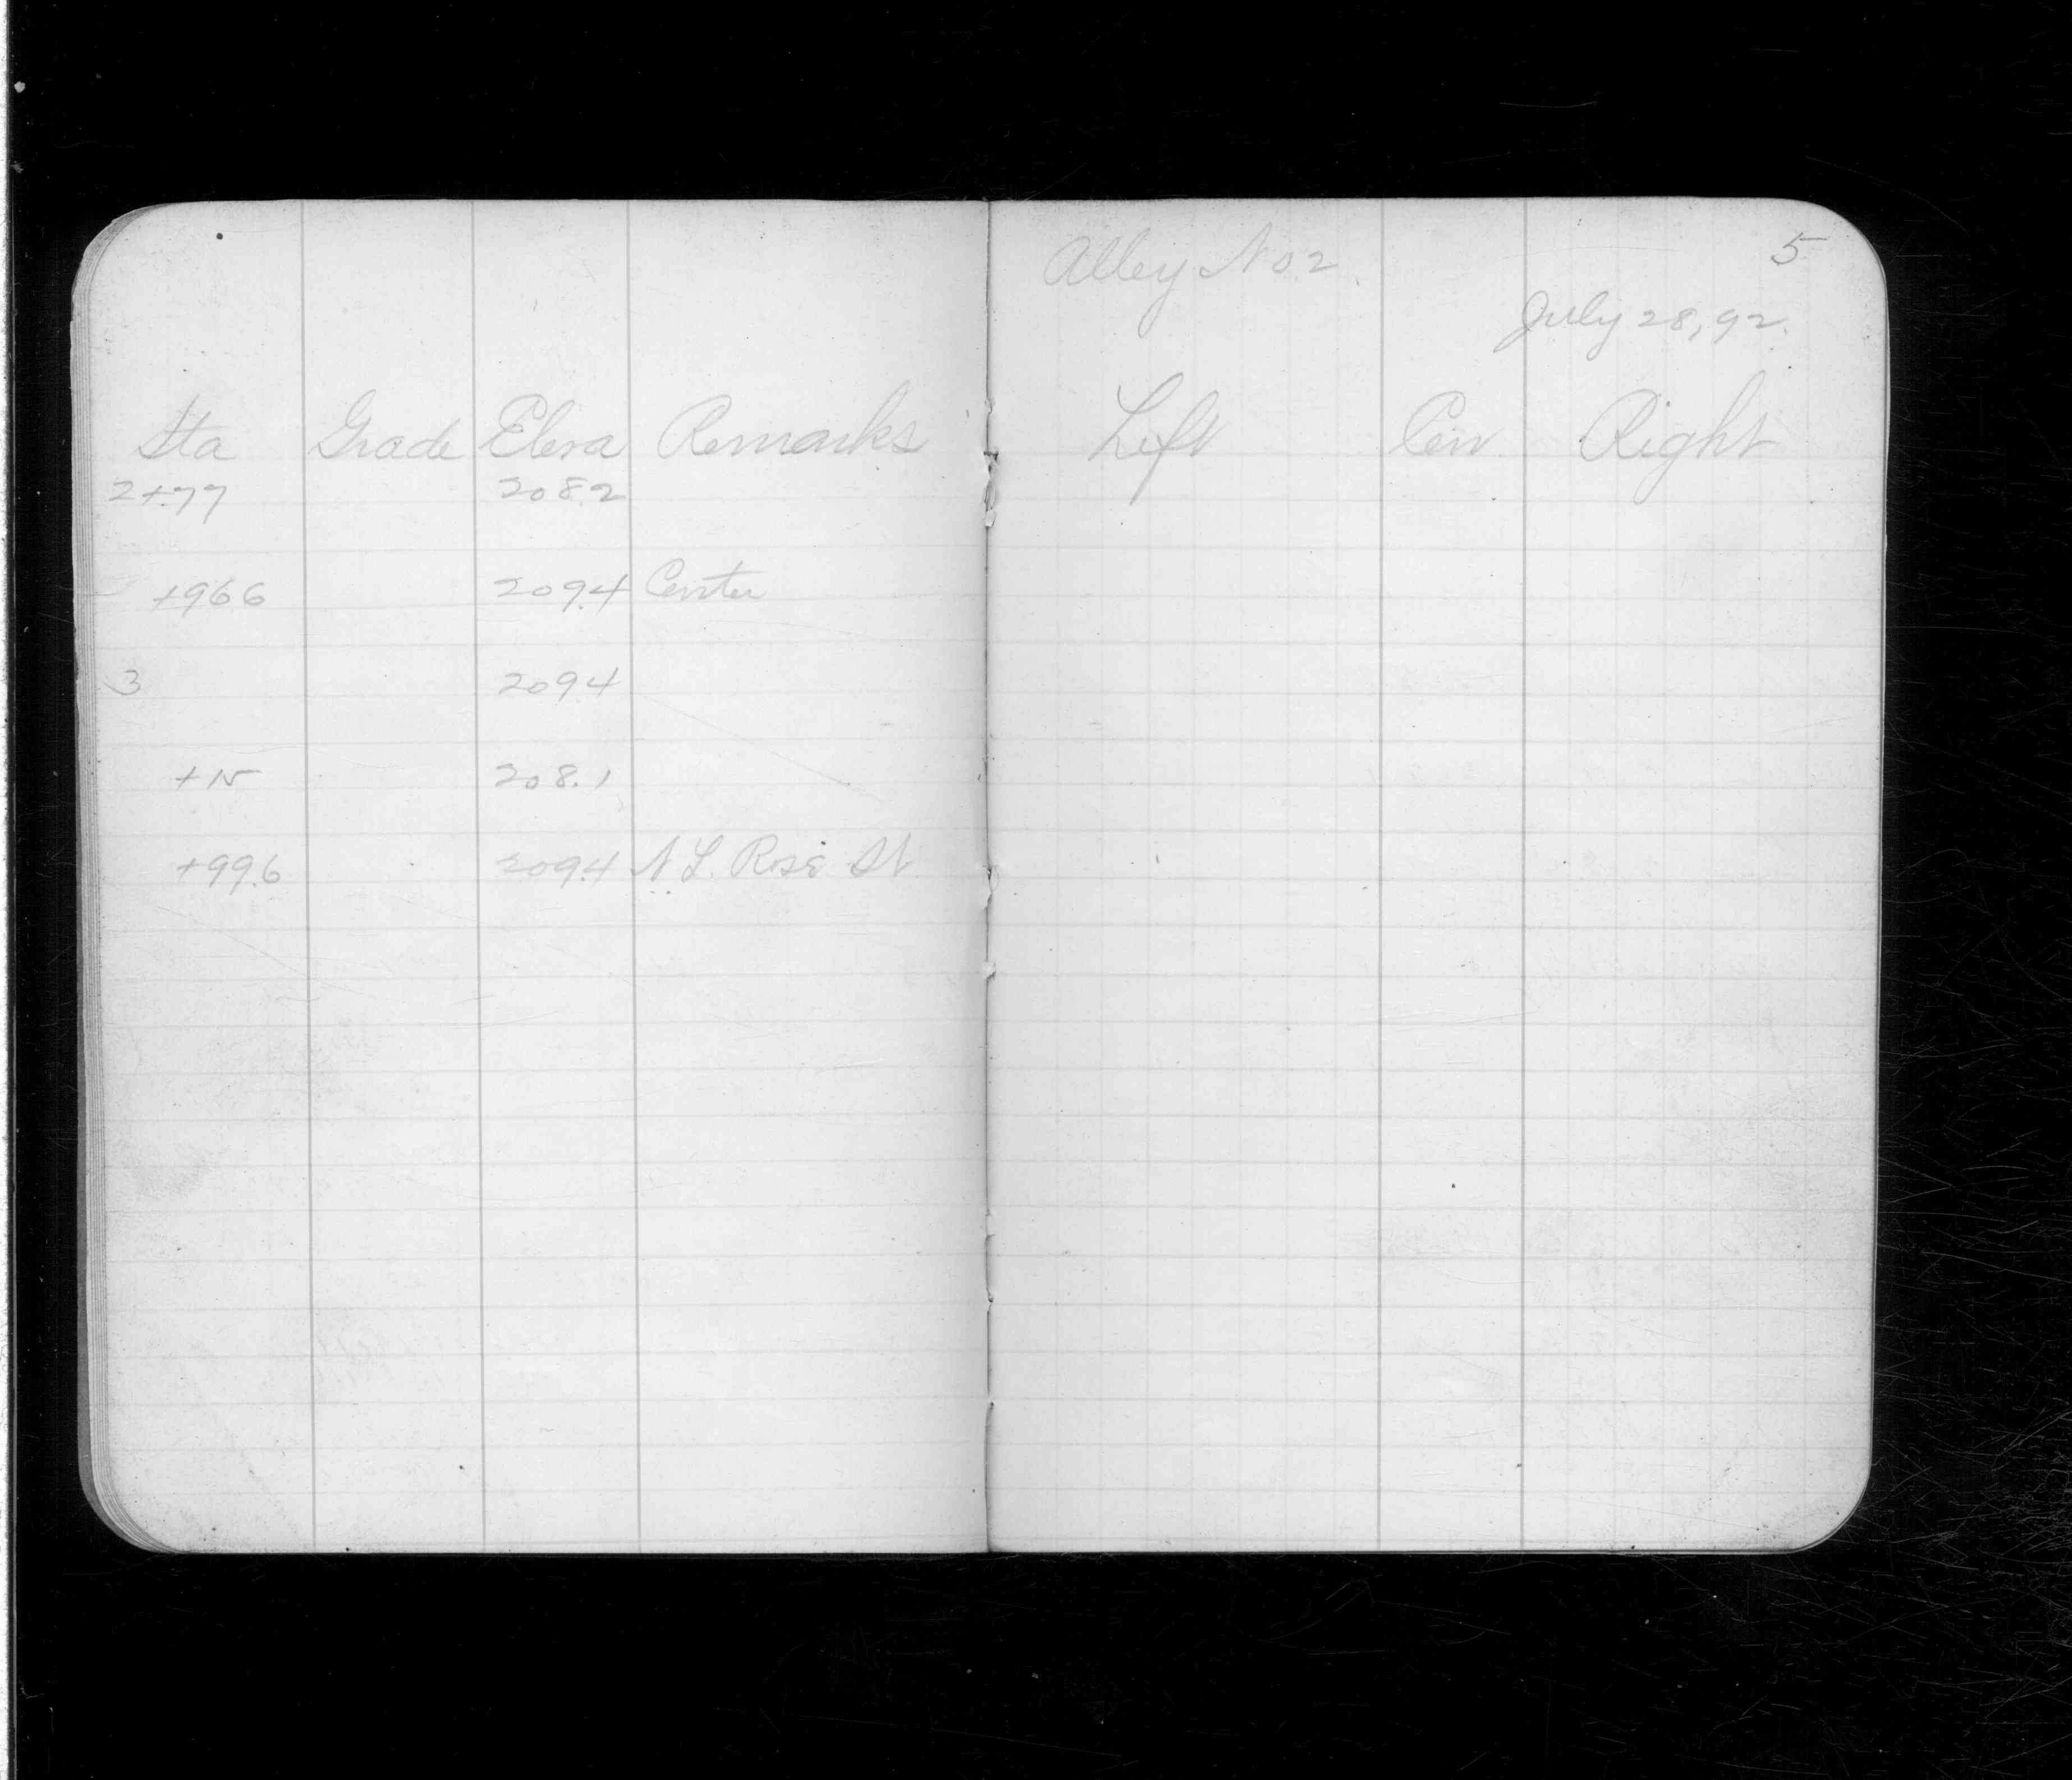 Sta Grade Eleva Remarks
2+77 208.2
+966 209.4 Center
3 2094
+15 208.1
+99.6 209.4 N L. Rose St
Alley No 2 5
July 28, 92.
Left Cen Right